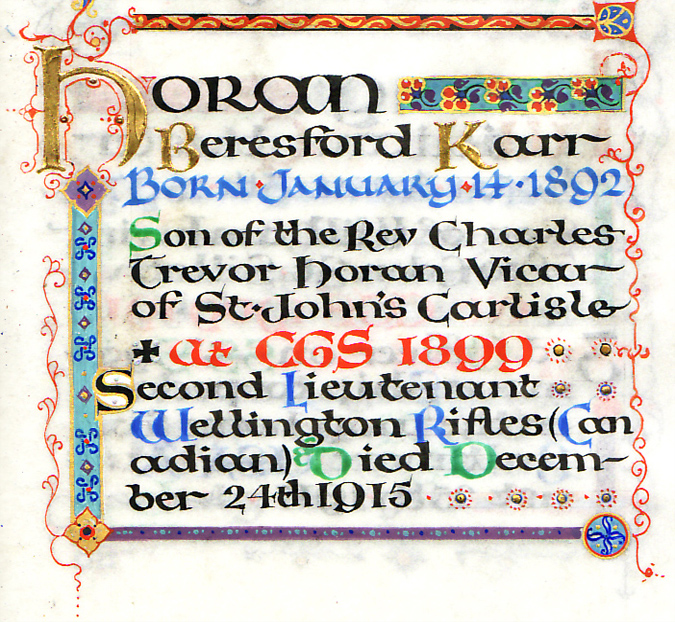 Horan
Beresford Karr
Born · January · 14 · 1892
Son of the Rev Charles
Trevor Horan Vicar
of St. John's Carlisle
✠ at CGS 1899
Second Lieutenant
Wellington Rifles (Can
adian) & Died Decem-
ber 24th 1915